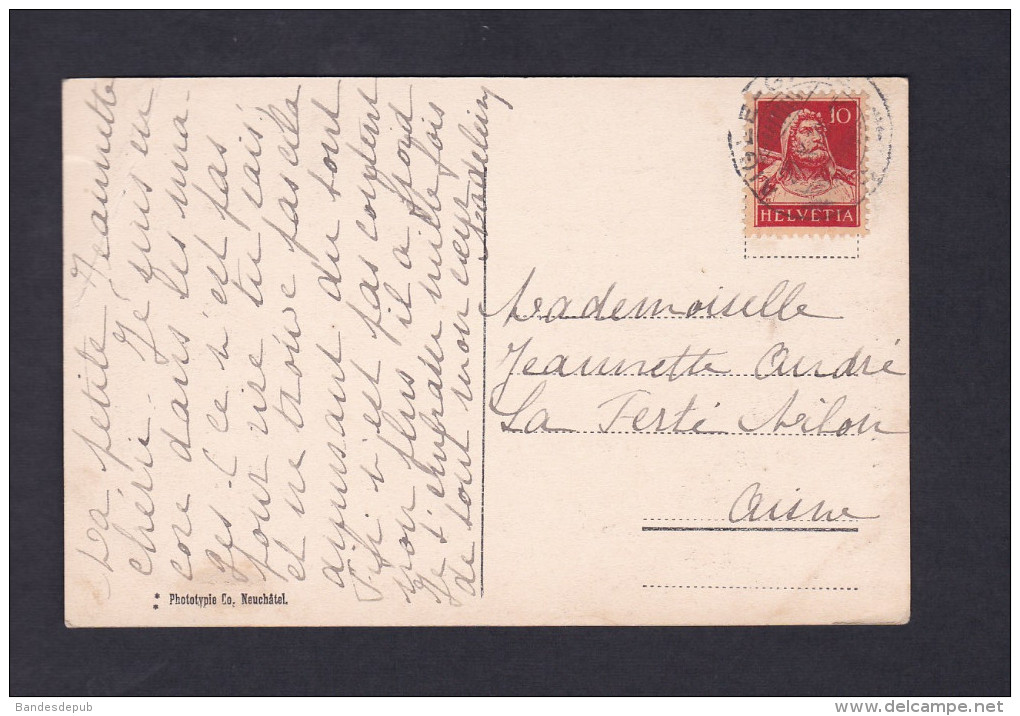 Ma petite Jeannette
chérie. Je suis en
core dans les nua-
ges, ce n'est pas
pour rire tu sais,
et ne trouve pas cela
amusant du tout
n'est pas content
non plus il a froid
Je t'embrasse mille fois
de tout mon cœur
Mademoiselle
Jeannette André
La Ferté Milon
Aisne
10
HELVETIA
Phototypie Co. Neuchâtel.
Bandesdepub
www.delcampe.net